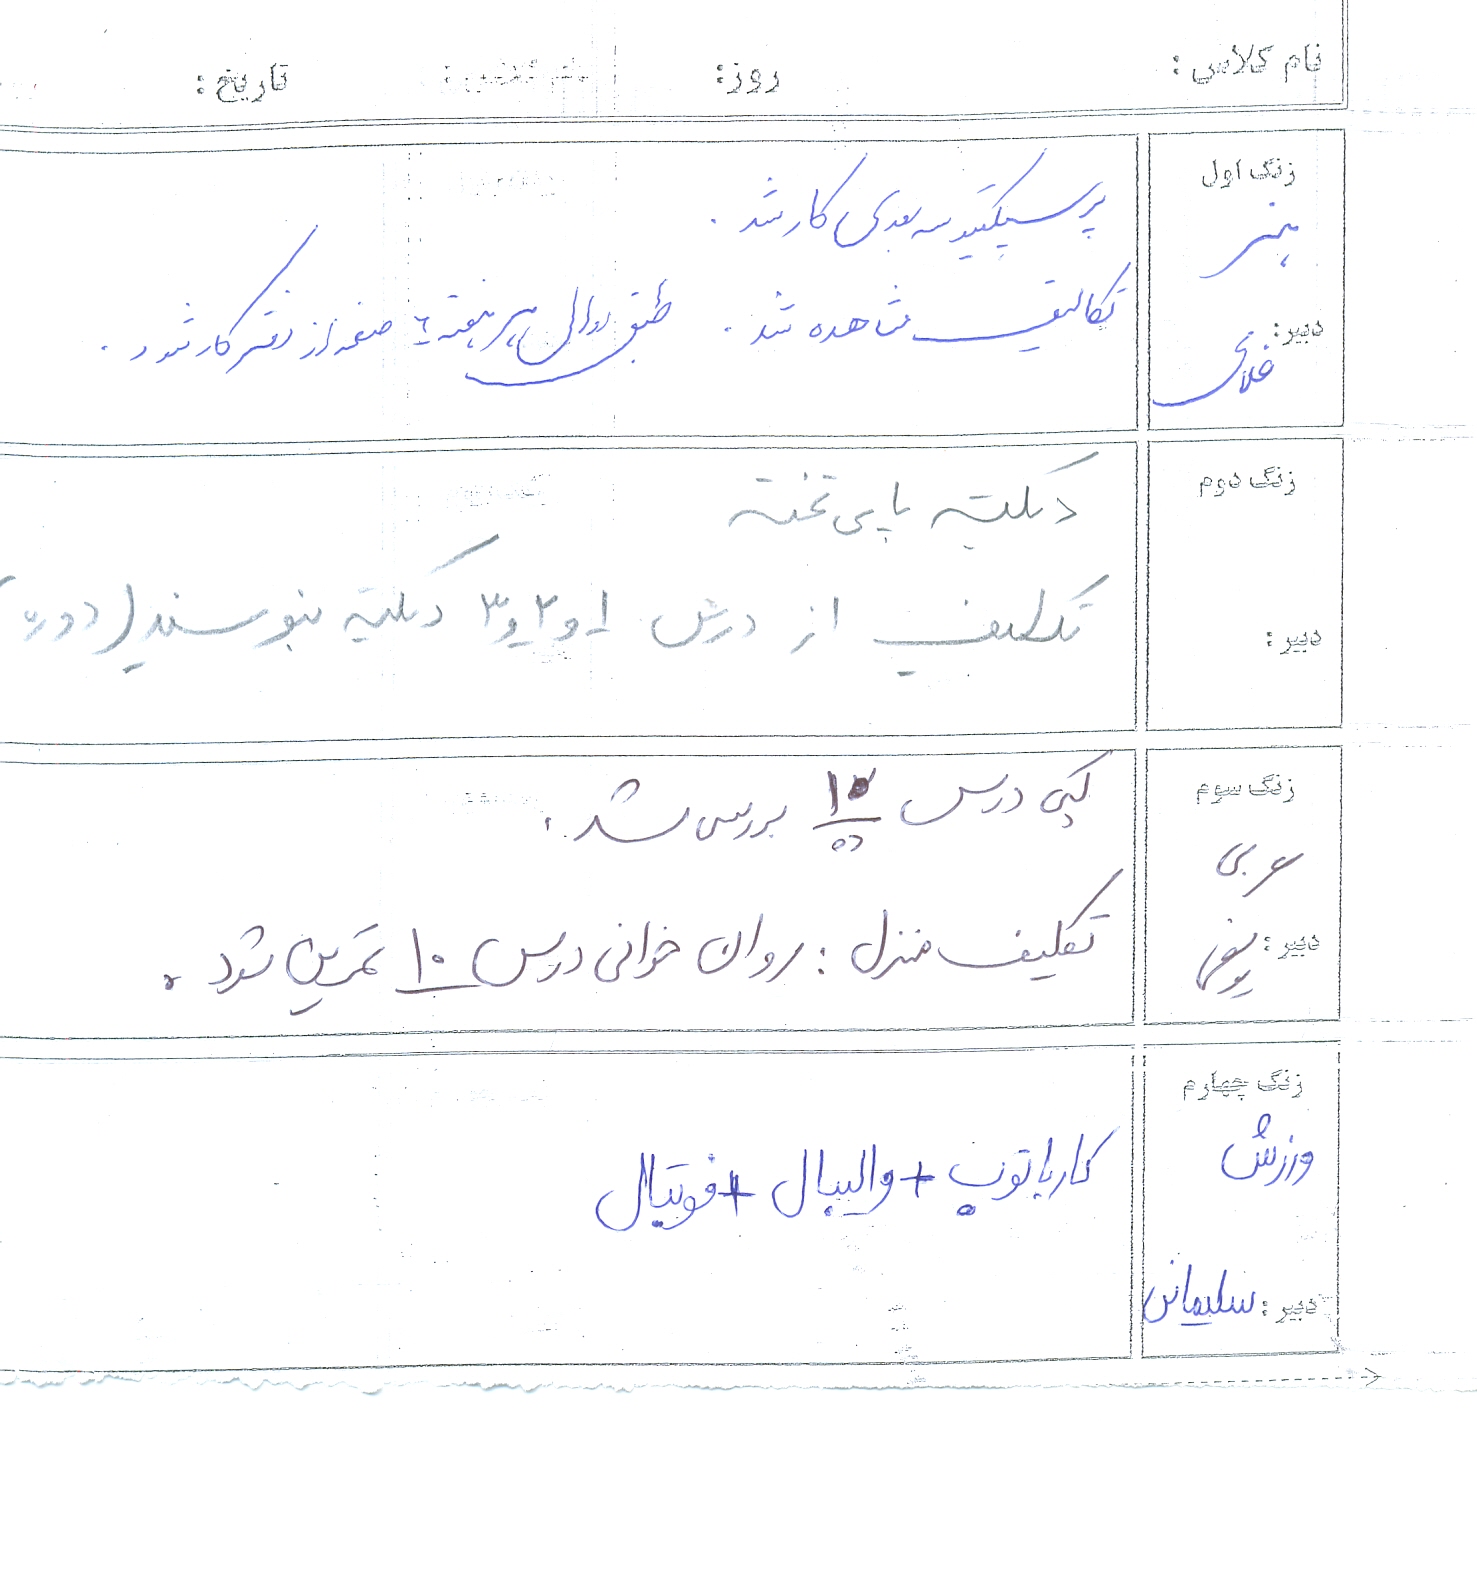 نام کلاس :
روز:
تاریخ :
زنگ اول
هنر
دبیر:
فلاحی
پرسپکتیو سه بعدی کار شد .
تکالیف مشاهده شد . طبق روال هر هفته ۴ صفحه از دفتر کار شود .
زنگ دوم
دبیر :
دیکته پای تخته
تکلیف از درس ۱ و ۲ و ۳ دیکته بنویسند (دوره)
زنگ سوم
عربی
دبیر :
کپی درس ۱۰ بررسی شد .
ده
تکلیف منزل : روان خوانی درس ۱۰ تمرین شود .
زنگ چهارم
ورزش
دبیر : سلیمانی
کار با توپ + والیبال + فوتبال